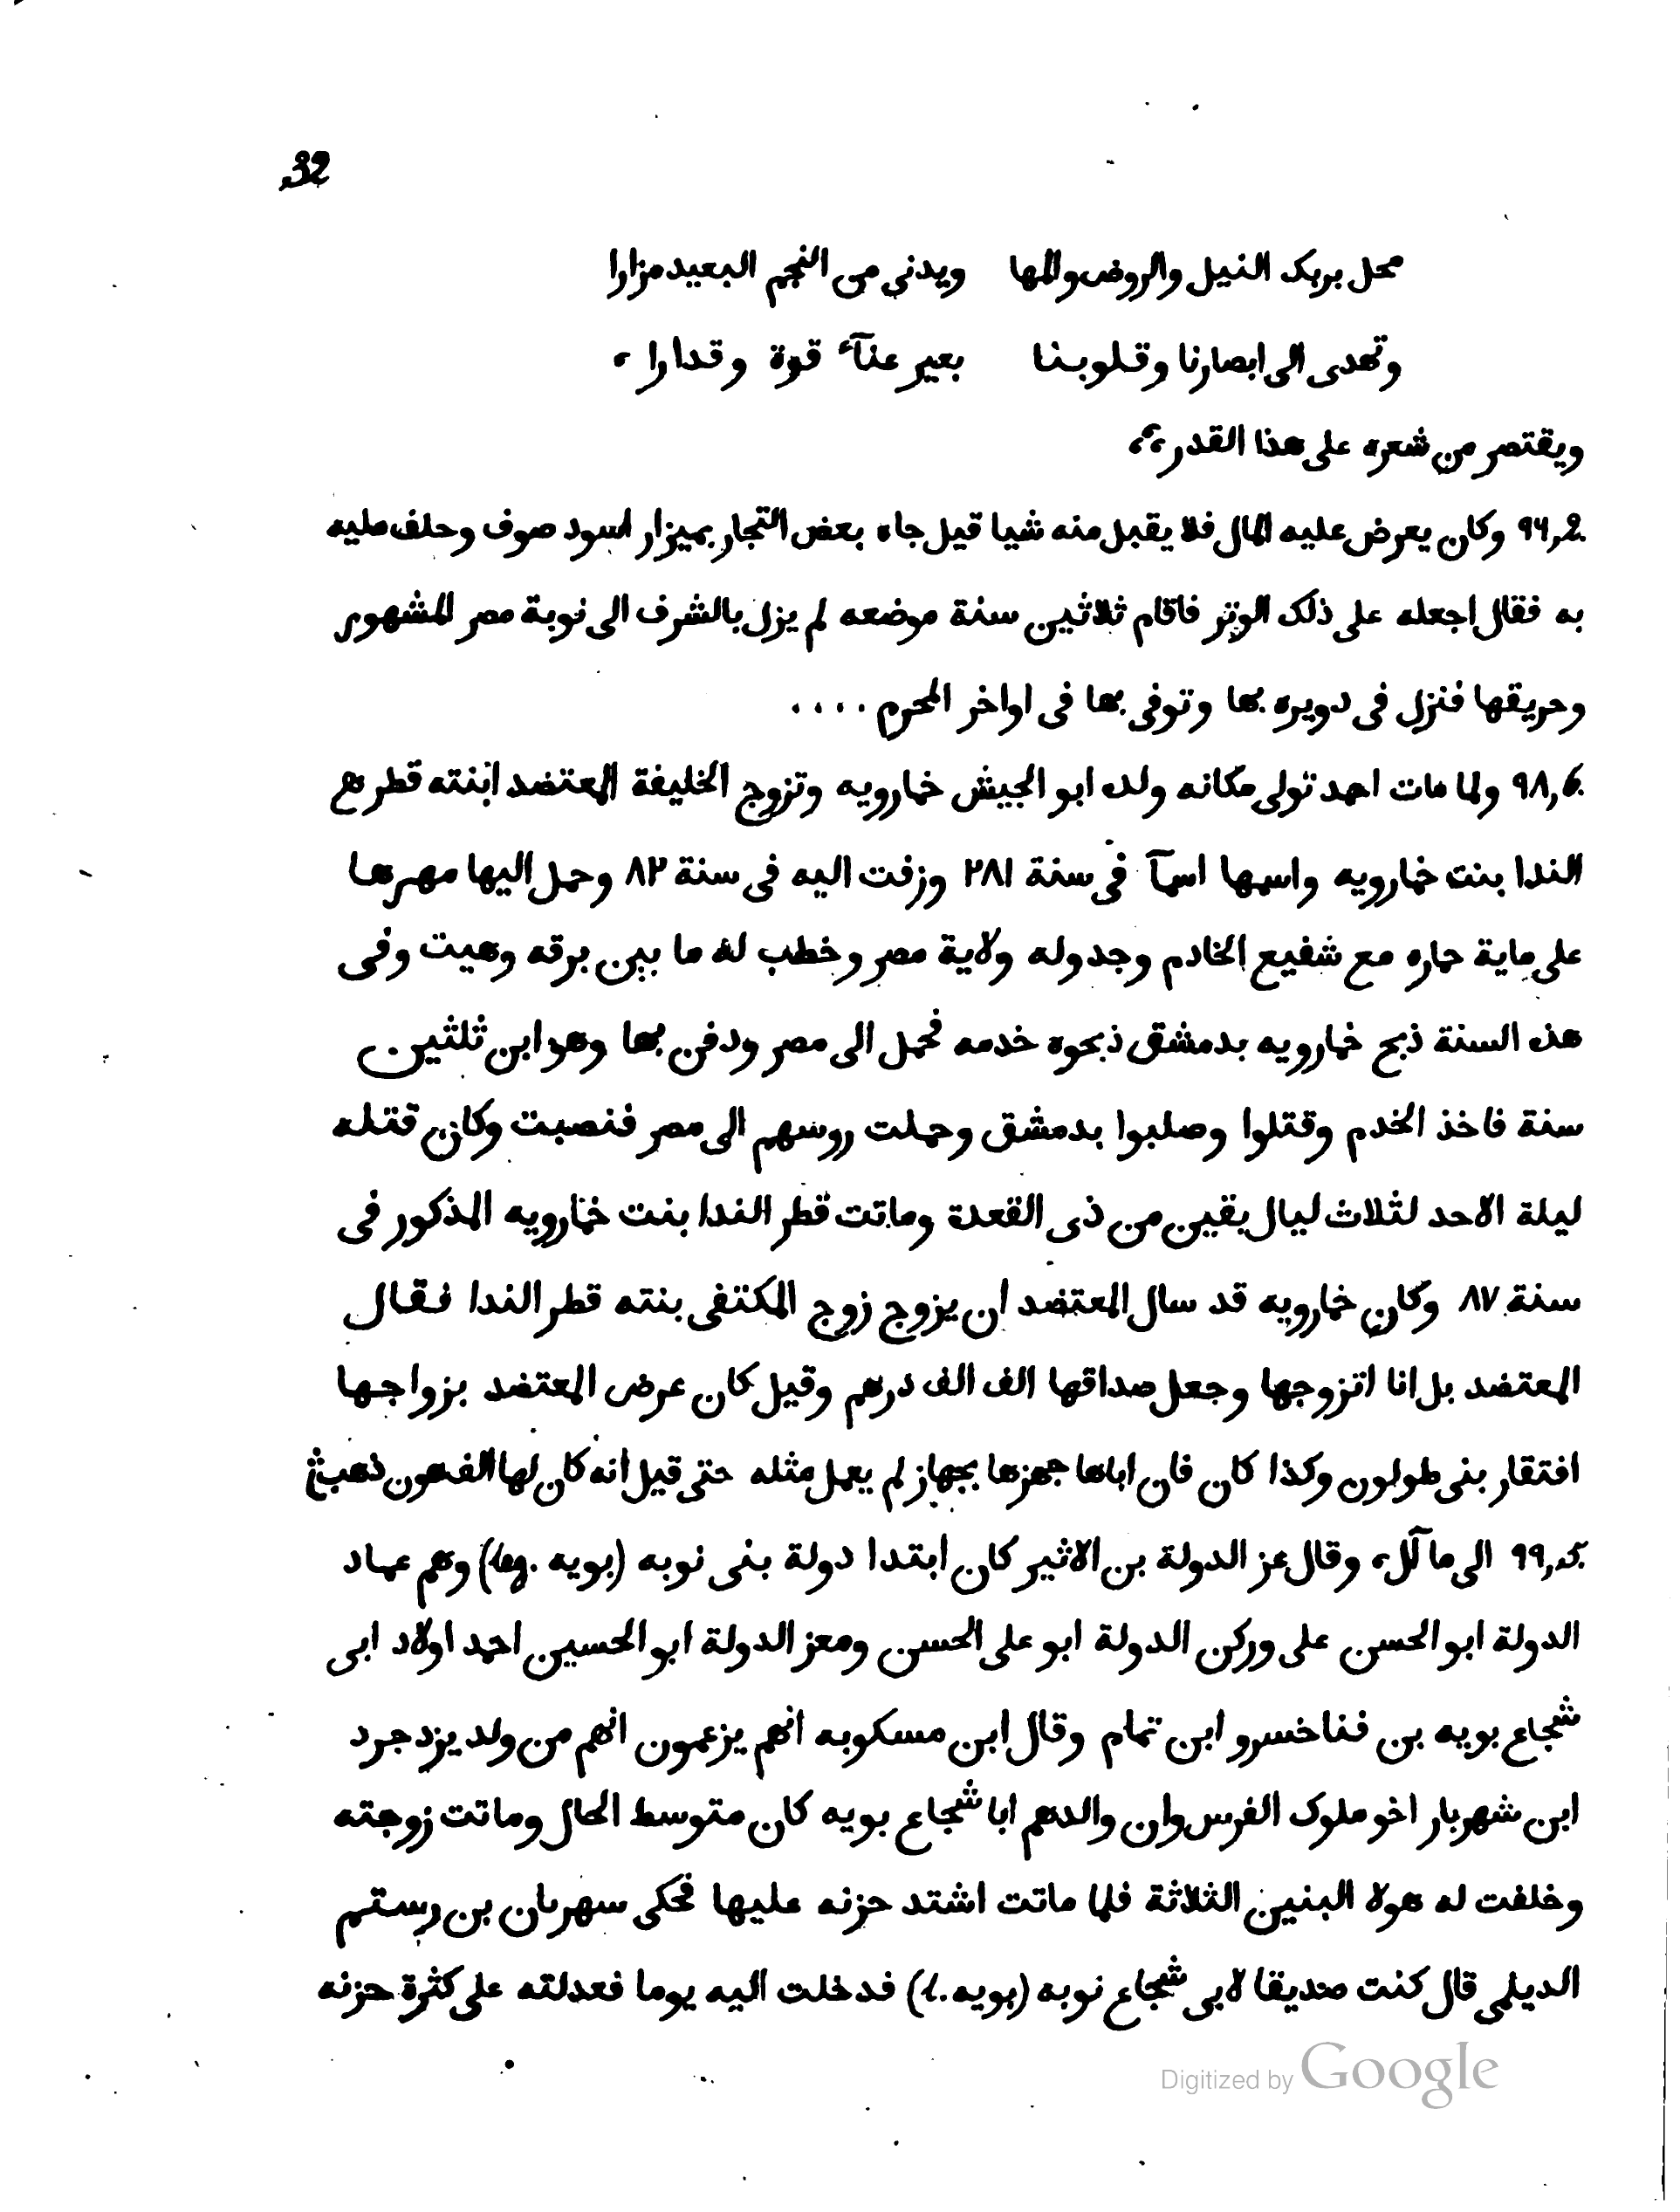 32
محل بربك النيل والروض والمها ويدنى من النجم البعيد مزارا
وتهدى الى ابصارنا وقلوبنا بعير عنآء قوة وقدارا ،
ويقتصر من شعره على هذا القدر ،،
٩٦,2. وكان يعرض عليه المال فلا يقبل منه شيا قيل جاه بعض التجار بميزار اسود صوف وحلف عليه
به فقال اجعله على ذلك الوتر فاقام ثلاثين سنة موضعه لم يزل بالشرف الى نوبة مصر المشهور
وحريقها فنزل فى دويره بها وتوفى بها فى اواخر المحرم ....
٩٨,6. ولما مات احمد تولى مكانه ولده ابو الجيش خمارويه وتزوج الخليفة المعتضد ابنته قطر مع
الندا بنت خمارويه واسمها اسمآ فى سنة ٢٨١ وزفت اليه فى سنة ٨٢ وحمل اليها مهرها
على ماية حماره مع شفيع الخادم وجدوله ولاية مصر وخطب له ما بين برقه وهيت وفى
هذه السنة ذبح خمارويه بدمشق ذبحوه خدمه فحمل الى مصر ودفن بها وهو ابن ثلثين
سنة فاخذ الخدم وقتلوا وصلبوا بدمشق وحملت روسهم الى مصر فنصبت وكان قتله
ليلة الاحد لثلاث ليال بقين من ذى القعدة وماتت قطر الندا بنت خمارويه المذكور فى
سنة ٨٧ وكان خمارويه قد سال المعتضد ان يزوج زوج المكتفى بنته قطر الندا فقال
المعتضد بل انا اتزوجها وجعل صداقها الف الف درهم وقيل كان عرض المعتضد بزواجها
افتقار بنى طولون وكذا كان فان اباها جهزها بجهاز لم يعمل مثله حتى قيل انه كان لها الف هون ذهب
٩٩,5. الى ما آل، وقال عز الدولة بن الاثير كان ابتدا دولة بنى نوبه (بويه leg.) وهم عماد
الدولة ابو الحسن على وركن الدولة ابو على الحسن ومعز الدولة ابو الحسين احمد اولاد ابى
شجاع بويه بن فناخسرو ابن تمام وقال ابن مسكوبه انهم يزعمون انهم من ولد يزدجرد
ابن شهربار اخو ملوك الفرس وان والدهم ابا شجاع بويه كان متوسط الحال وماتت زوجته
وخلفت له هولا البنين الثلاثة فلما ماتت اشتد حزنه عليها فحكى سهربان بن رستم
الديلمى قال كنت صديقا لابى شجاع نوبه (بويه l.) فدخلت اليه يوما فعدلته على كثرة حزنه
Digitized by Google